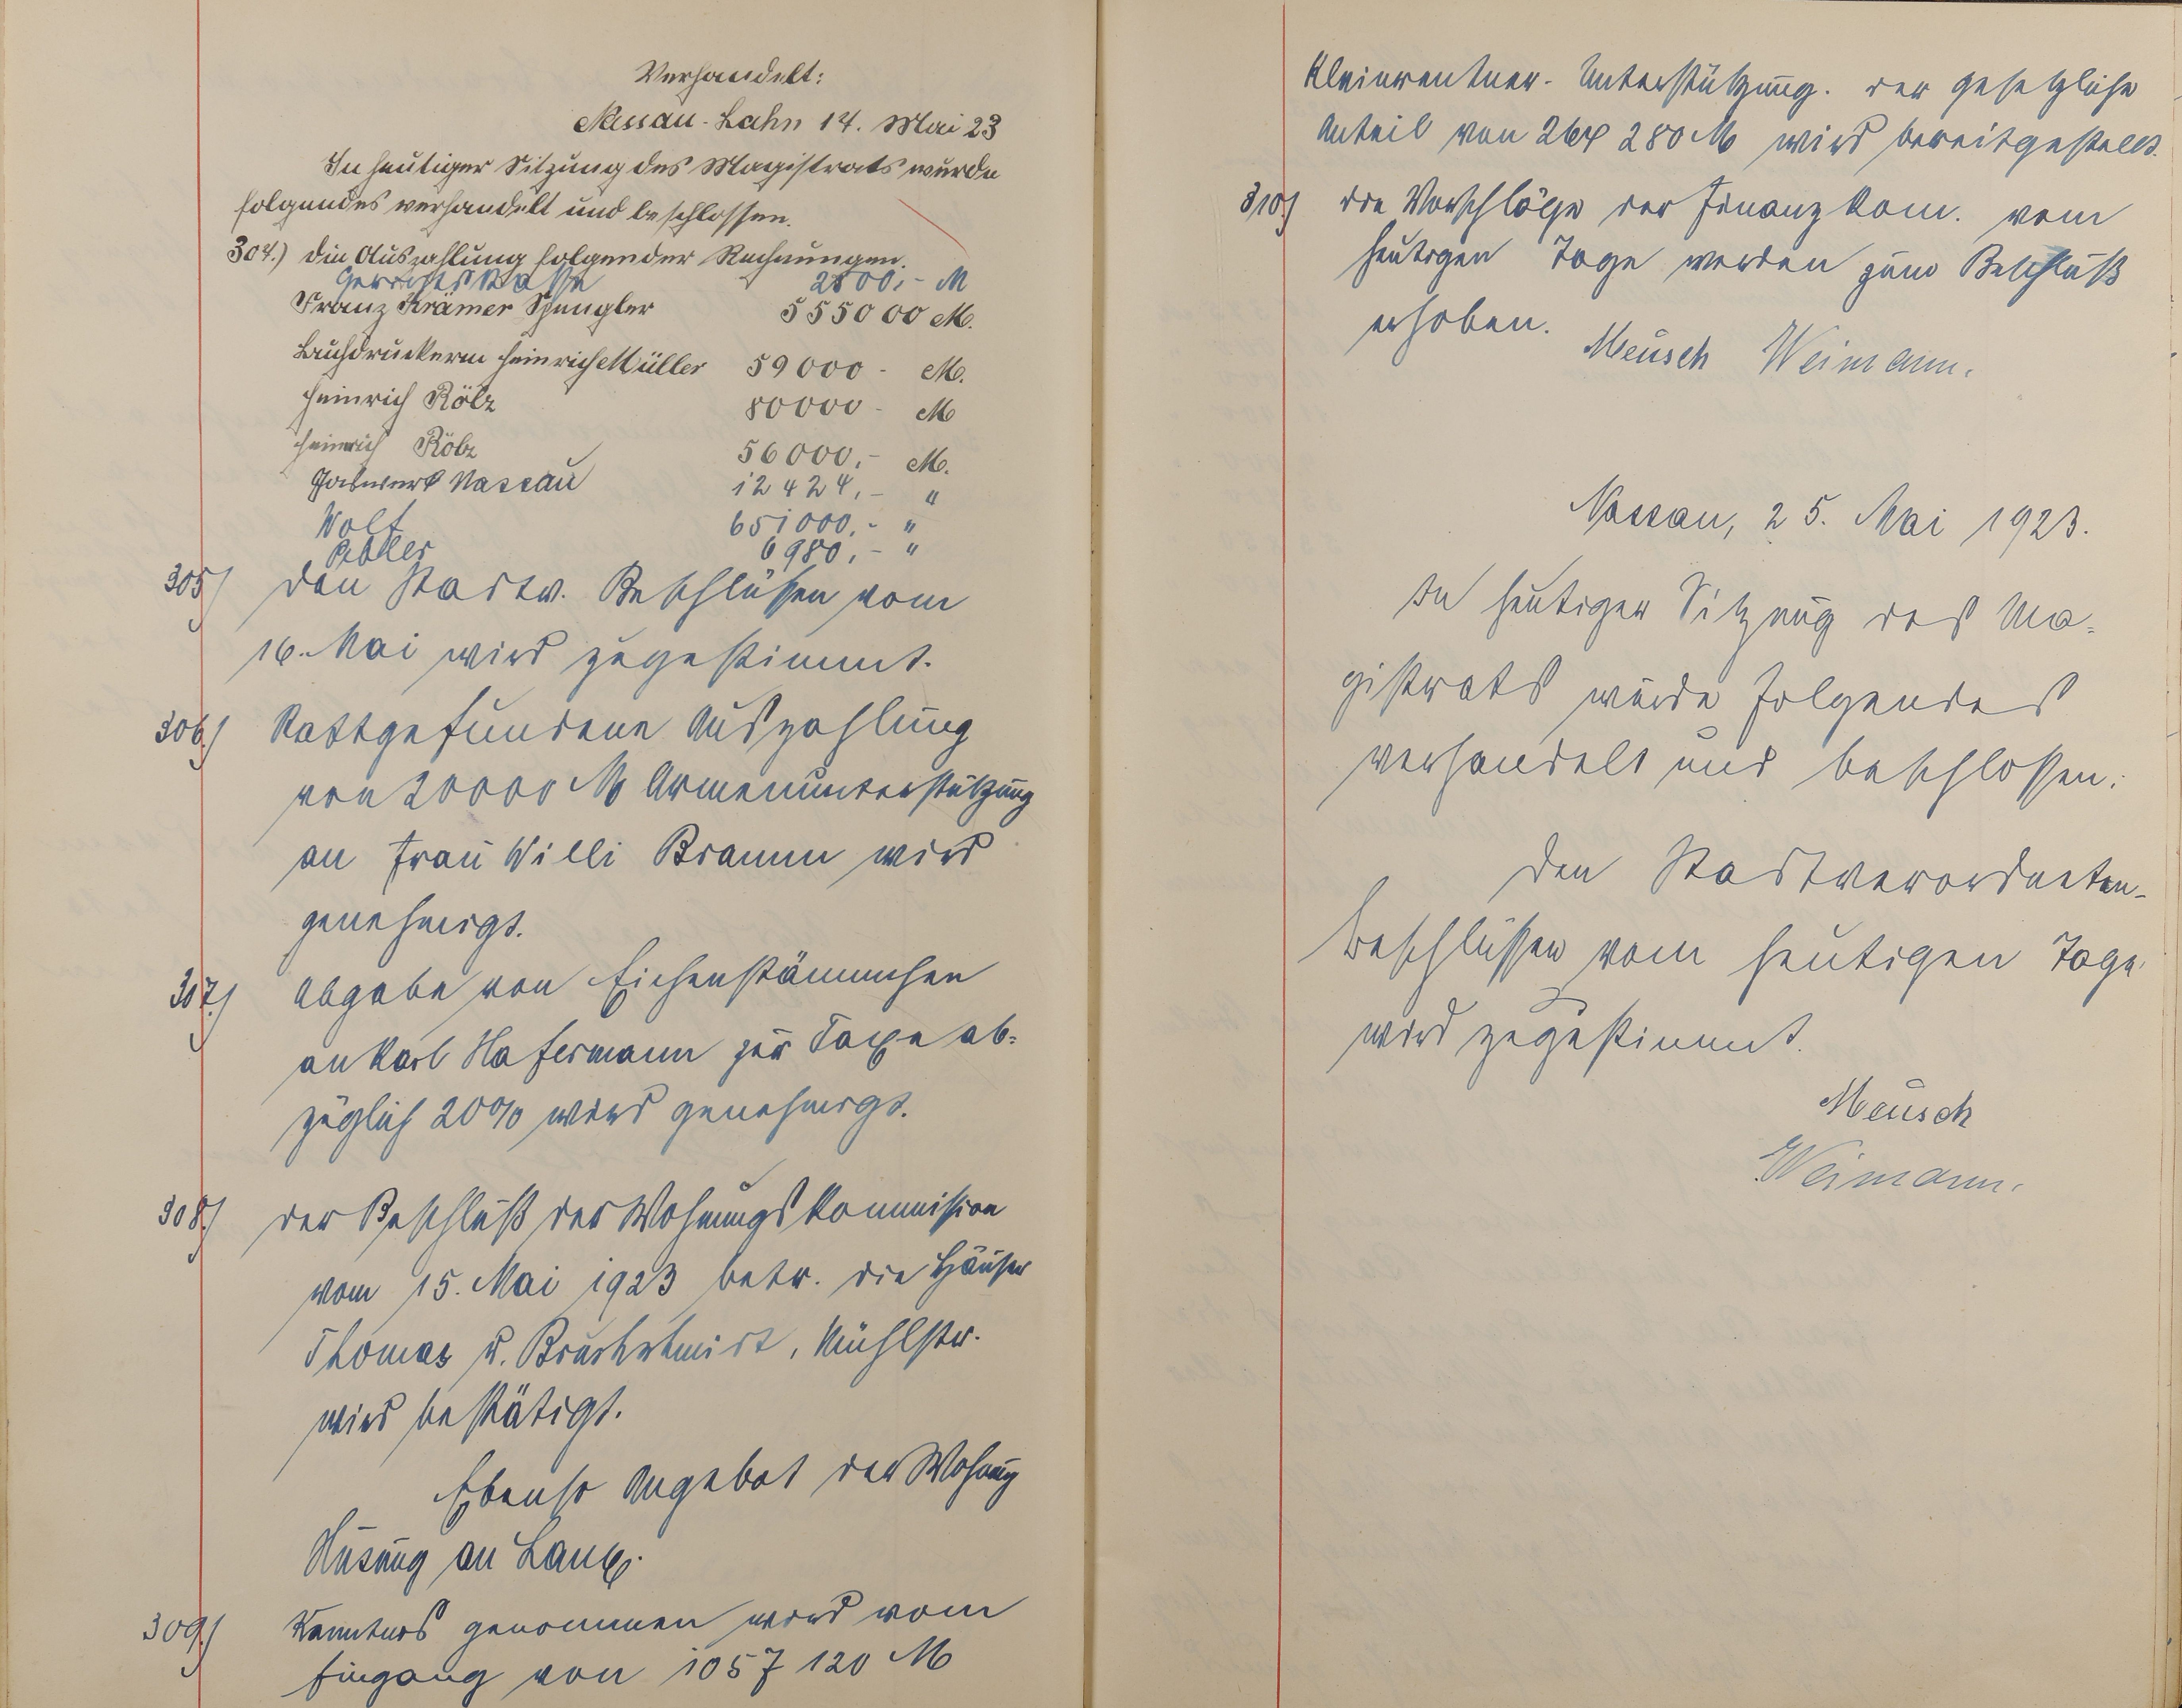 Verhandelt:
Nassau-Lahn 14. Mai 23
In heutiger Sitzung des Magistrats wurde
folgendes verhandelt und beschlossen.
304.) die Auszahlung folgender Rechnungen.
Gerichtskasse 2800,- M
Franz Krämer Spengler 555000 M.
Buchdruckerei Heinrich Müller 59000 - M.
Heinrich Rölz 80000 - M
Heinrich Rölz 56000,- M.
Gaswerk Nassau 12424,- "
Wolf 651000,- "
6980,- "
305) den Stadtv. Beschlüssen vom
16. Mai wird zugestimmt.
306.) Stattgefundene Auszahlung
von 20000 M Armenunterstützung
an Frau Willi Bramm wird
genehmigt.
307.) Abgabe von Eichenstämmchen
an Karl Hafermann zur Taxe ab-
züglich 20% wird genehmigt.
308.) der Beschluß der Wohnungskommission
vom 15. Mai 1923 betr. die Häuser
Thomas u. Bruchschmidt, Mühlstr.
wird bestätigt.
Ebenso Angebot der Wohnung
Hüsung an Lang.
309.) Kenntnis genommen wird vom
Eingang von 1057120 M
Kleinrentner-Unterstützung. der gesetzliche
Anteil von 264 280 M wird bereitgestellt.
310.) die Vorschläge der Finanzkom. vom
heutigen Tage werden zum Beschluß
erhoben.
Meusch Weimann.
Nassau, 25. Mai 1923.
In heutiger Sitzung des Ma-
gistrats wurde folgendes
verhandelt und beschlossen:
Den Stadtverordneten-
beschlüssen vom heutigen Tage
wird zugestimmt.
Meusch
Weimann.